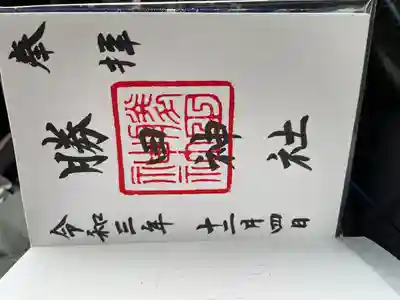 奉拝
勝田神社
令和三年 十二月四日